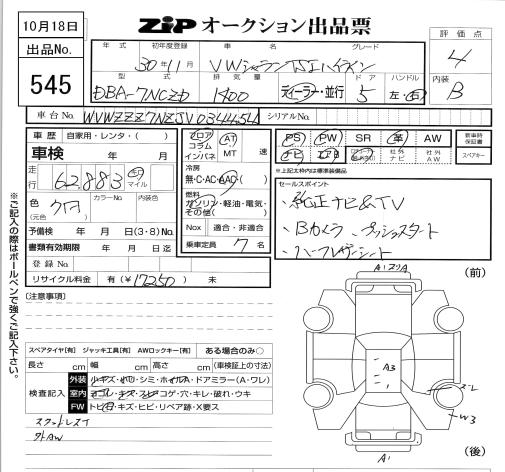 10月18日
出品No.
545
ZIP オークション出品票
評価点
4
内装
B
年式 初年度登録 車名 グレード
30年11月 VWシャラン TSIハイライン
型式 排気量 ディーラー・並行 ドア ハンドル
DBA-7NCZD 1400 5 左・右
車台No. WVWZZZ7NZJV034454 シリアルNo.
車歴 自家用・レンタ・( )
車検 年 月
走行 62883 km マイル
色(元色) クロ カラーNo. 内装色
予備検 年 月 日(3・8)No.
書類有効期限 年 月 日迄
登録No
リサイクル料金 有(¥17250) 未
フロア コラム インパネ
AT MT 速
冷房
無・C・AC・AAC・( )
燃料
ガソリン・軽油・電気・その他( )
Nox 適合・非適合
乗車定員 7 名
PS PW SR 革 AW 新車時保証書
ナビ エアB 社外ナビ 社外AW スペアキー
※上記太枠内は標準装備品
セールスポイント
・純正ナビ&TV
・Bカメラ・プッシュスタート
・ハーフレザーシート
※ご記入の際はボールペンで強くご記入下さい。
[注意事項]
スペアタイヤ[有] ジャッキ工具[有] AWロックキー[有] ある場合のみ○
長さ cm 幅 cm 高さ cm (車検証上の寸法)
検査記入
外装 小キズ・凹・シミ・ホイルA・ドアミラー(A・ワレ)
室内 ヨゴレ・キズ・スレ・コゲ・穴・キレ・破れ・ウキ
FW トビ石・キズ・ヒビ・リペア跡・X要ス
スタッドレス
外AW
(前)
A3
W3
A1
(後)